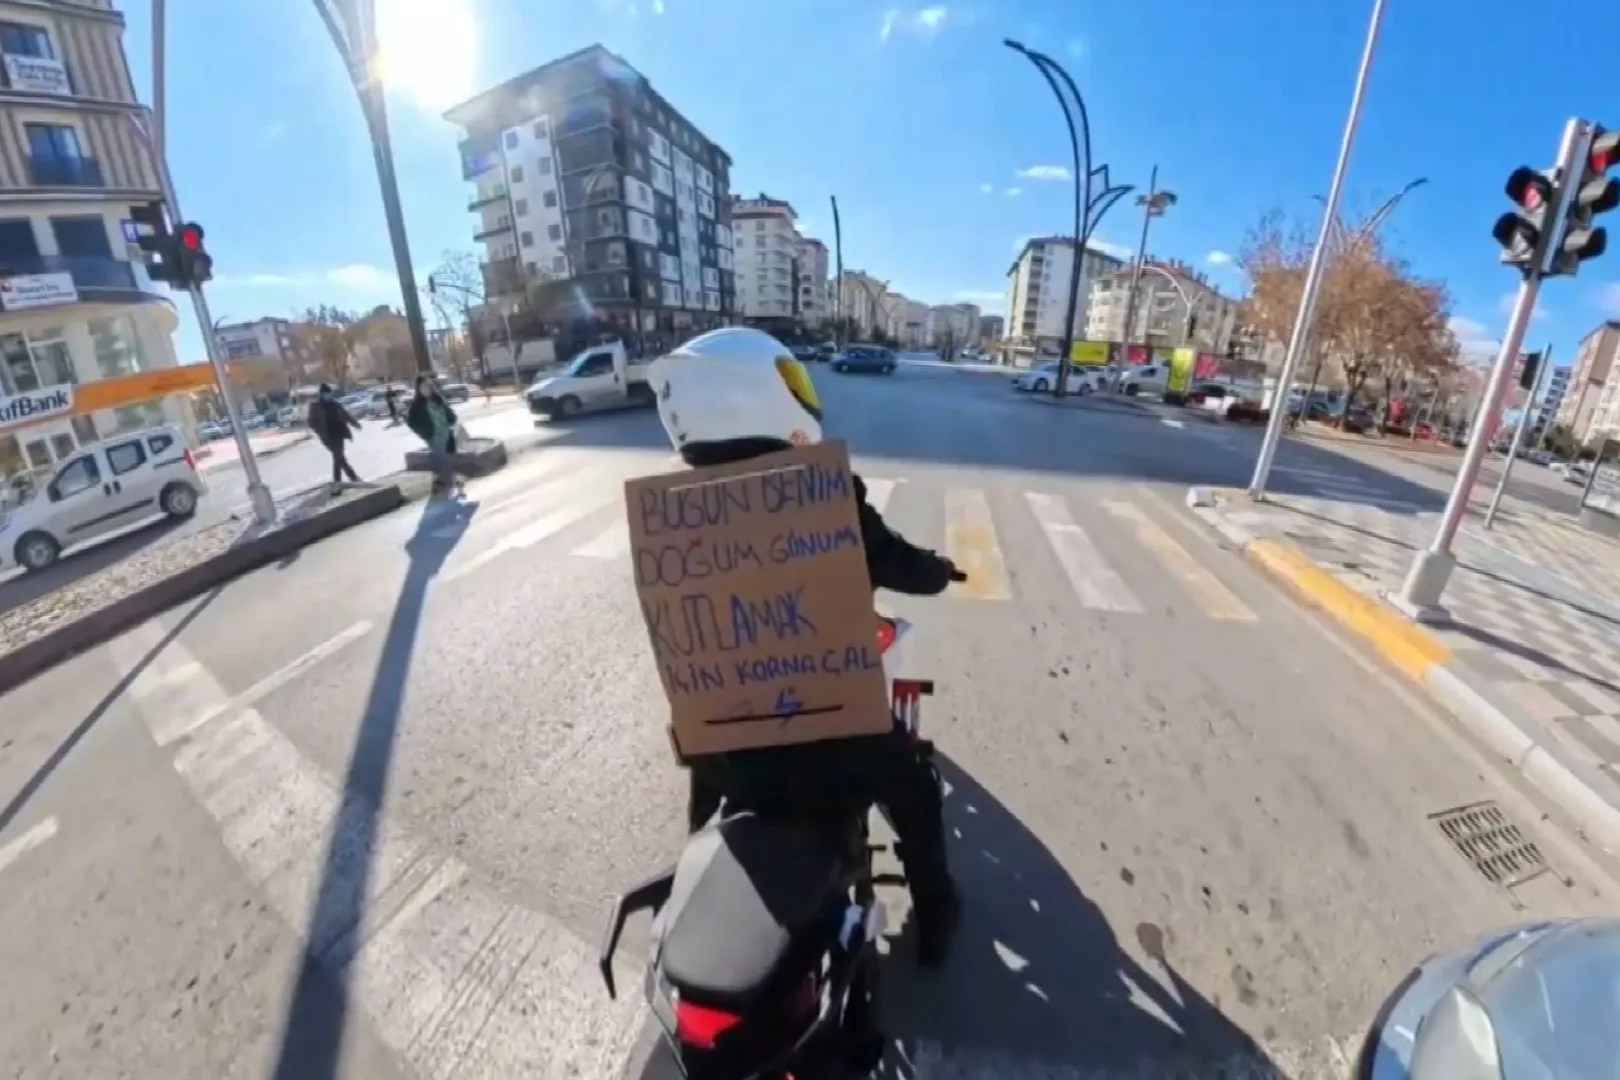 BUGÜN BENİM
DOĞUM GÜNÜM
KUTLAMAK
İÇİN KORNA ÇAL
kıfBank